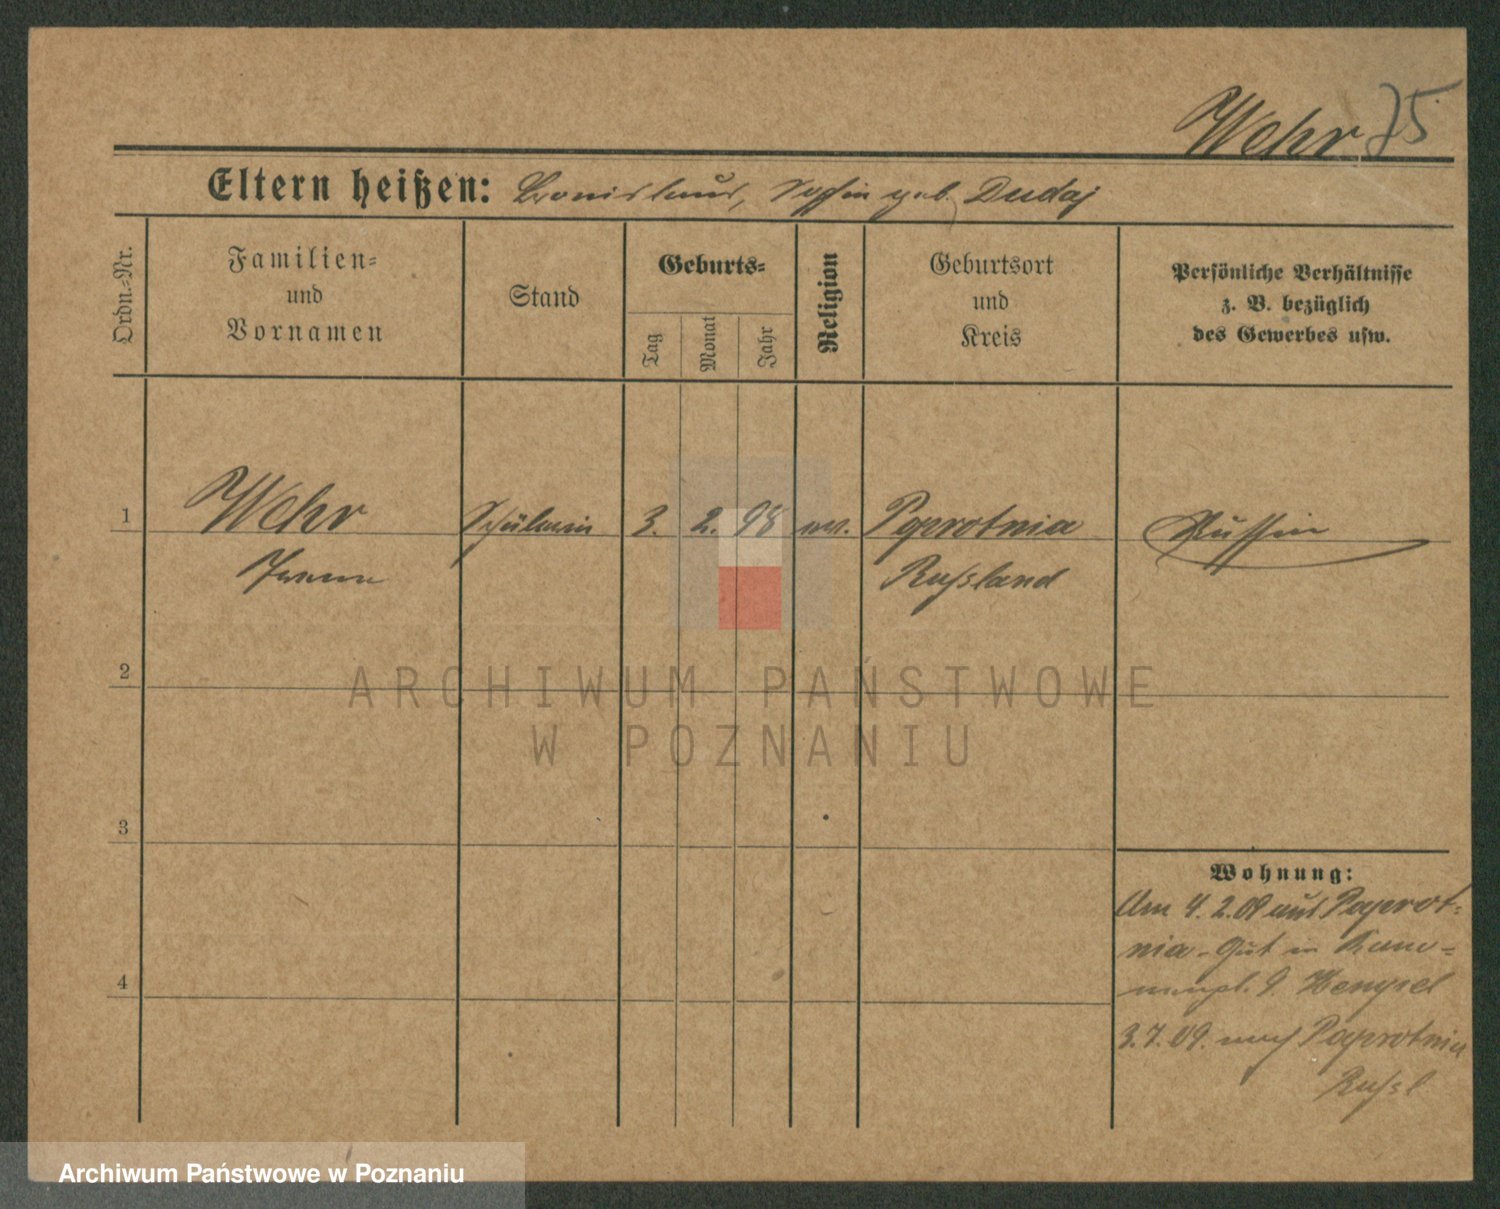 Wehr 75
Eltern heißen: Bronislaus, Sophia geb. Dudaj
Ordn.-Nr.
Familien-
und
Vornamen
Stand
Geburts-
Tag
Monat
Jahr
Religion
Geburtsort
und
Kreis
Persönliche Verhältnisse
z. B. bezüglich
des Gewerbes usw.
1 Wehr Schülerin 3. 2. 98 Paprotnia Russin
Russland
2
3
4
Wohnung:
Am 4. 2. 09 aus Paprot-
nia - Gut in
9. Hempel
3. 7. 09. nach Paprotnia
Russl
ARCHIWUM PAŃSTWOWE
W POZNANIU
Archiwum Państwowe w Poznaniu